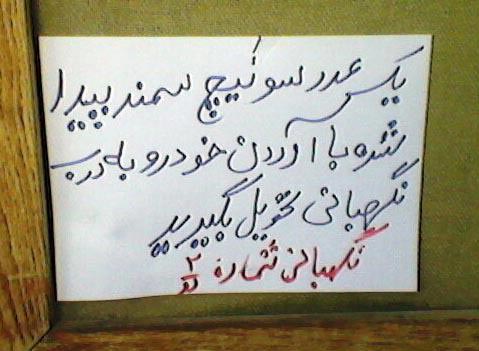 یک عدد سوئیچ سمند پیدا
شده با آوردن خودرو به درب
نگهبانی تحویل بگیرید
نگهبانی شماره ۲